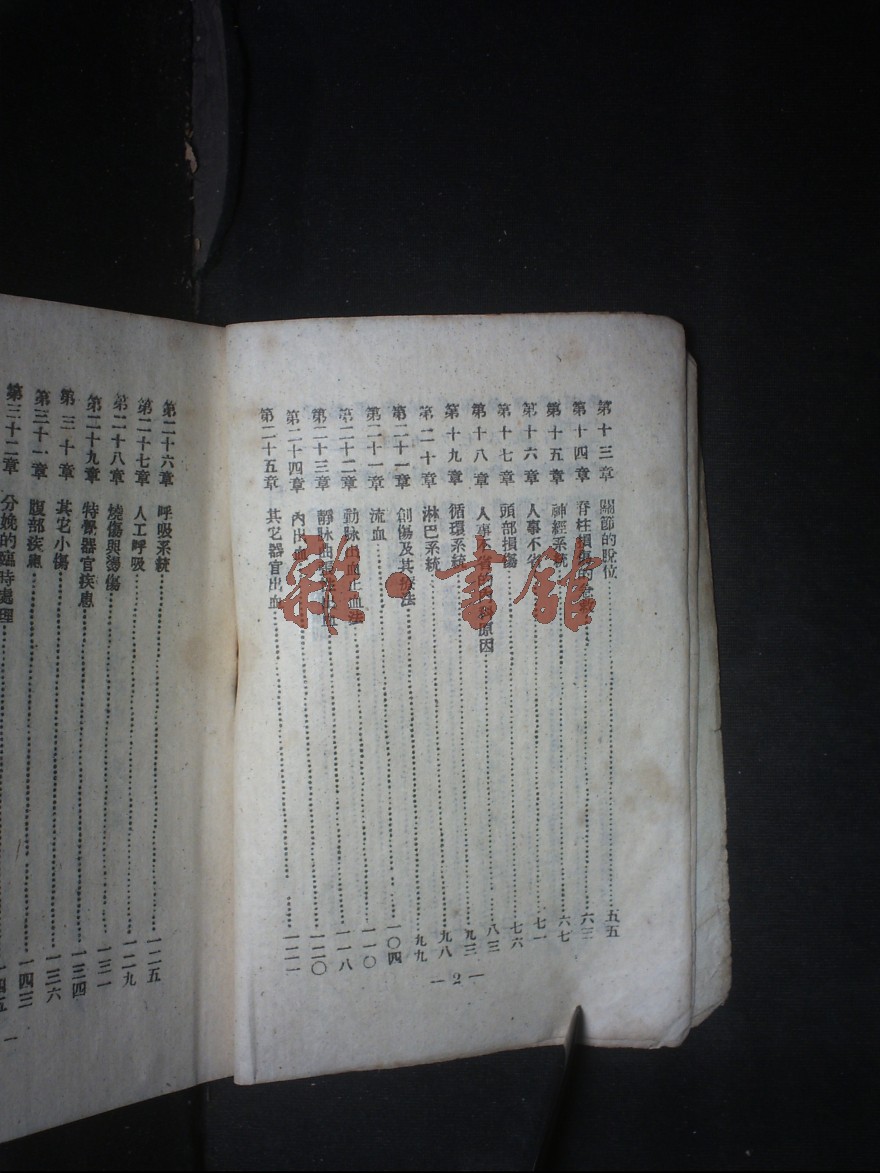 第十三章 關節的脫位 五五
第十四章 脊柱損傷的急救 六三
第十五章 神經系統 六七
第十六章 人事不省 七一
第十七章 頭部損傷 七六
第十八章 人事不省的 原因 八三
第十九章 循環系統 九三
第二十章 淋巴系統 九八
第二十一章 創傷及其療法 九九
第二十一章 流血 一〇四
第二十二章 動脉出血止血法 一一〇
第二十三章 靜脉 出血 一一八
第二十四章 內出血 一二〇
第二十五章 其它器官出血 一二一
— 2 —
第二十六章 呼吸系統 一二五
第二十七章 人工呼吸 一二九
第二十八章 燒傷與燙傷 一三一
第二十九章 特殊器官疾患 一三四
第三十章 其它小傷 一三六
第三十一章 腹部疾患 一四三
第三十二章 分娩的臨時處理 一四五
雜·書館